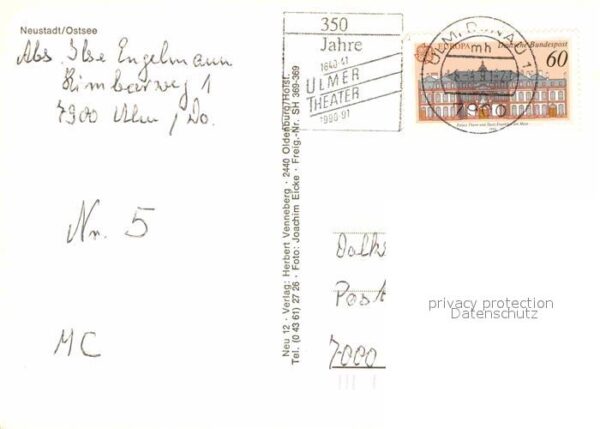 Neustadt/Ostsee
Abs. Ilse Engelmann
Kimbarweg 1
7900 Ulm / Do.
Nr. 5
MC
Neu 12 · Verlag: Herbert Venneberg · 2440 Oldenburg/Holst.
Tel. (0 43 61) 27 26 · Foto: Joachim Eicke · Freig.-Nr. SH 369-369
350
Jahre
1640-41
ULMER
THEATER
1990-91
ULM, DONAU 1
mh
7900
EUROPA Deutsche Bundespost
60
Post
7000
privacy protection
Datenschutz